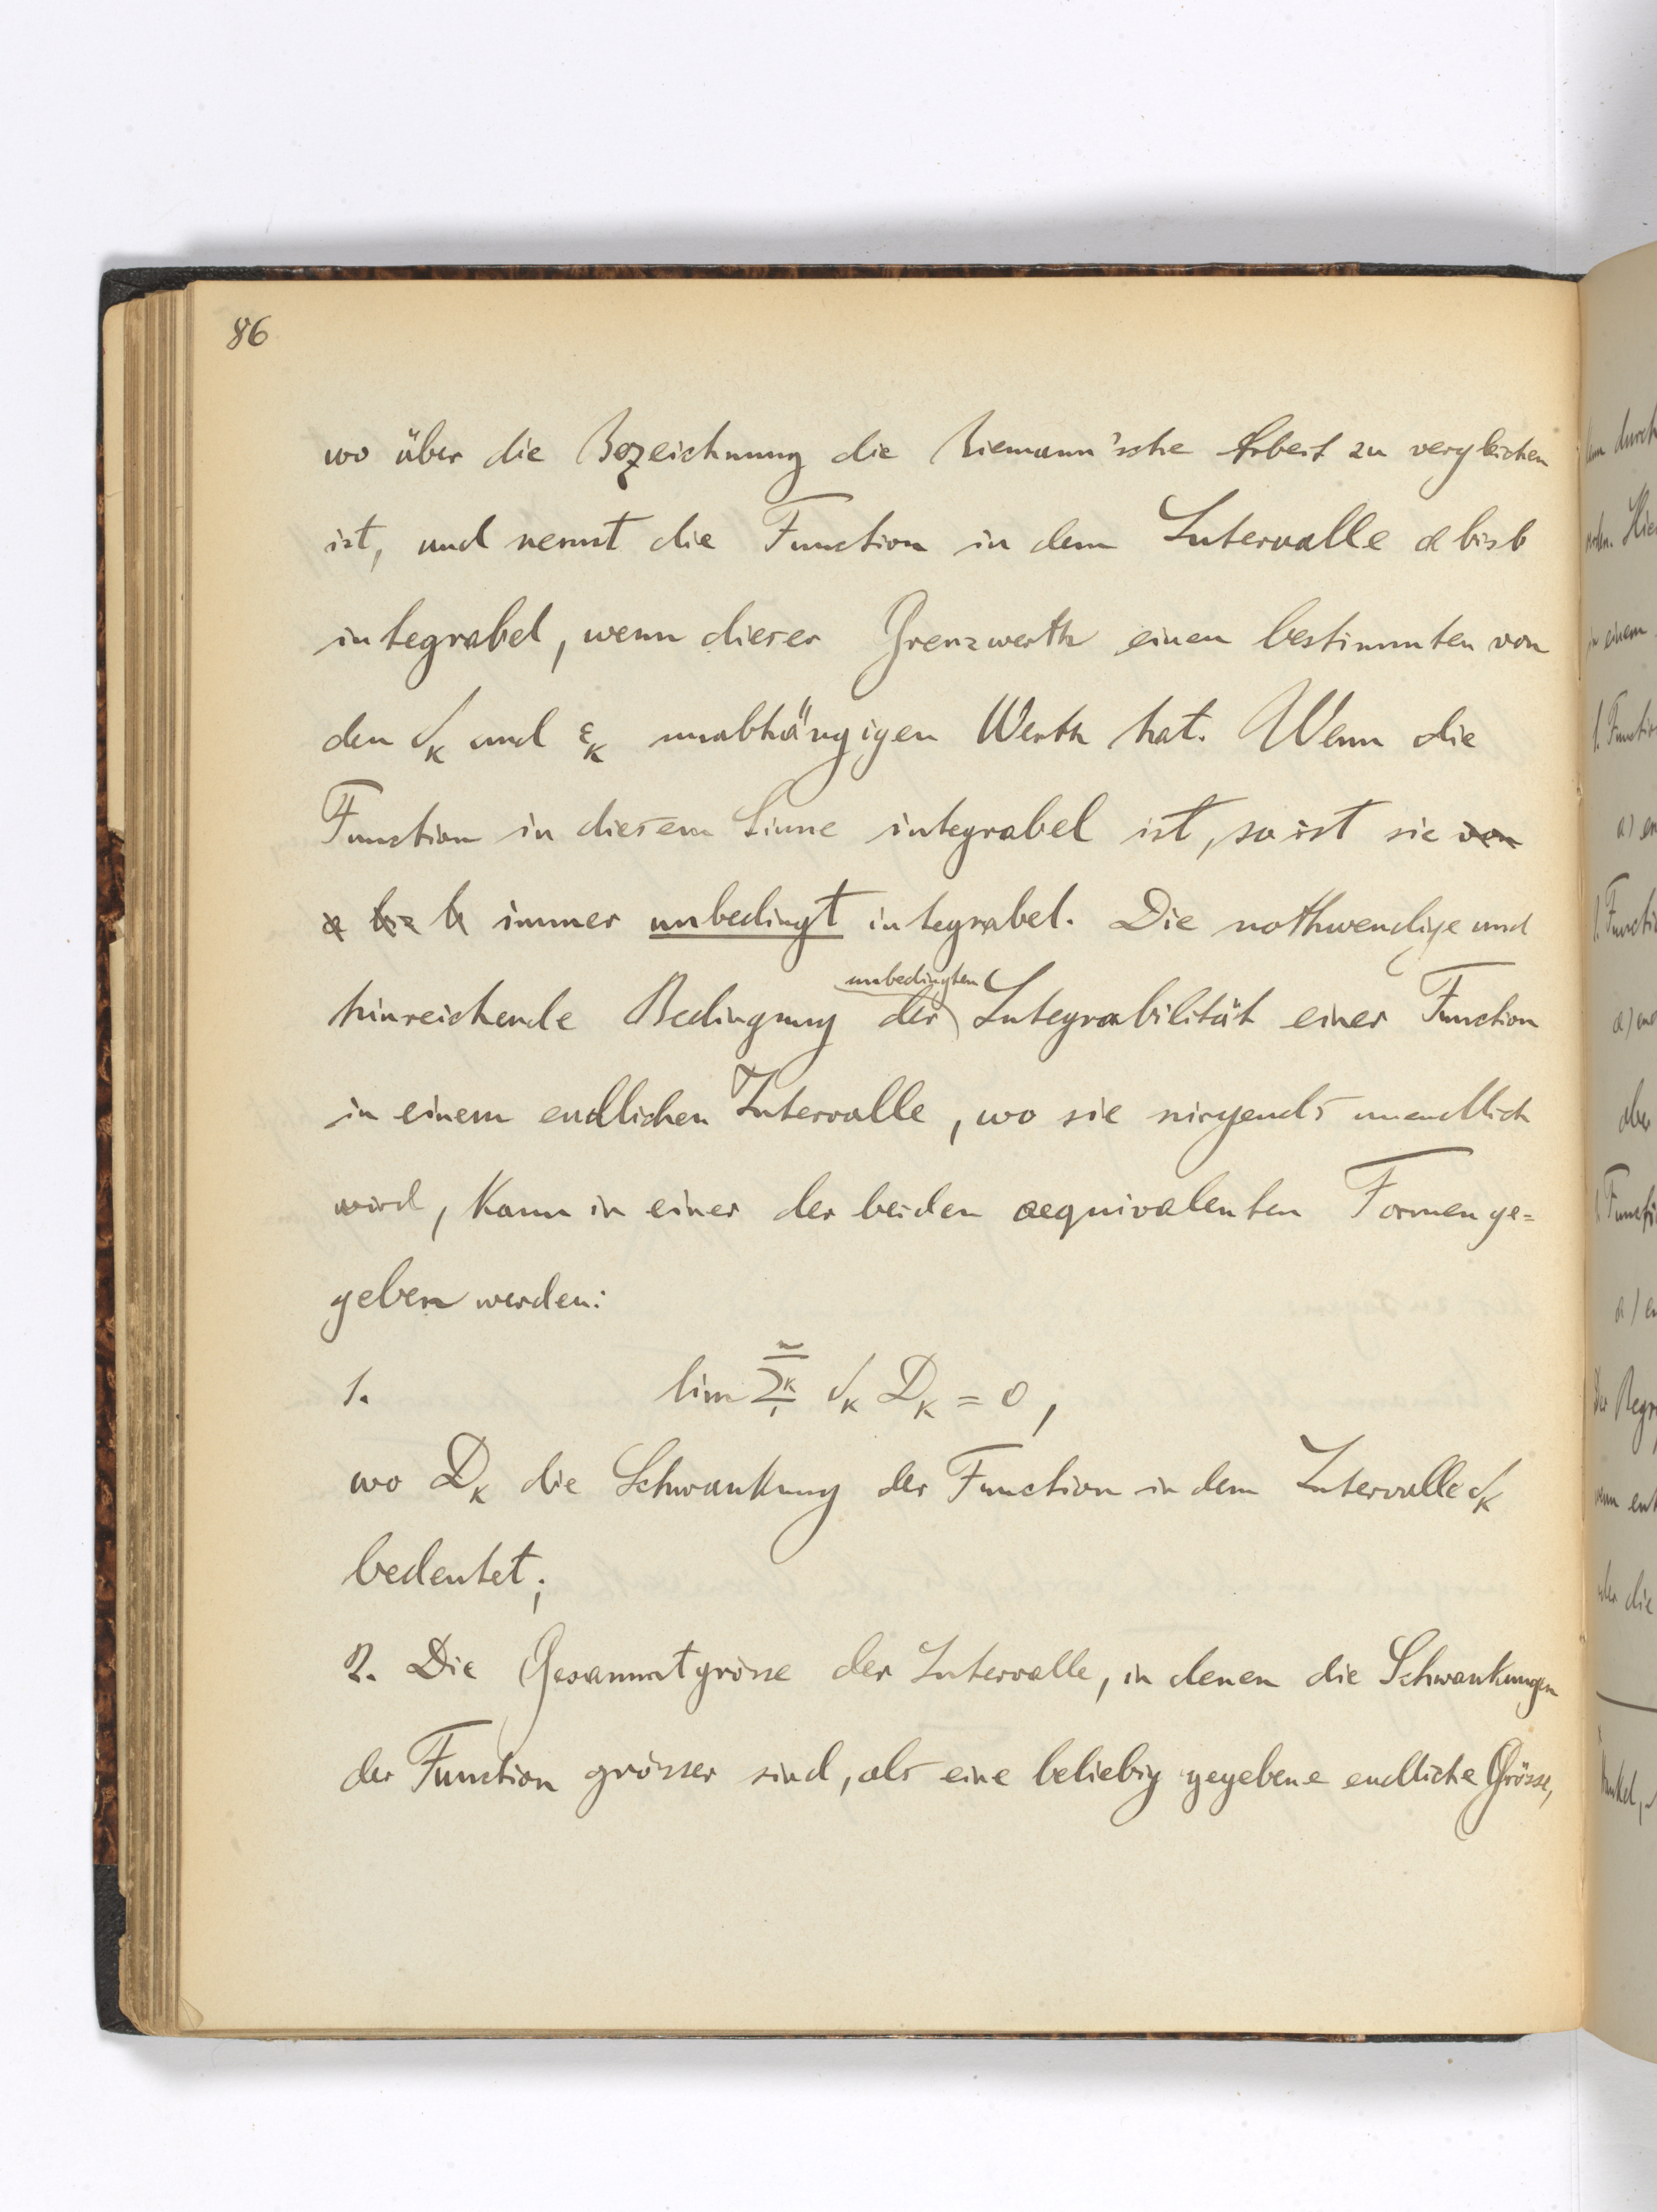 86
wo über die Bezeichnung die Riemann'sche Arbeit zu vergleichen
ist, und nennt die Function in dem Intervalle a bis b
integrabel, wenn dieser Grenzwerth einen bestimmten von
den δ_κ und ε_κ unabhängigen Werth hat. Wenn die
Function in diesem Sinne integrabel ist, so ist sie von
a bis b immer unbedingt integrabel. Die nothwendige und
unbedingten
hinreichende Bedingung der Integrabilität einer Function
in einem endlichen Intervalle, wo sie nirgends unendlich
wird, kann in einer der beiden aequivalenten Formen ge=
geben werden:
1. lim Σ_1^n κ δ_κ D_κ = 0,
wo D_κ die Schwankung der Function in dem Intervalle δ_κ
bedeutet;
2. Die Gesammtgrösse der Intervalle, in denen die Schwankungen
der Function grösser sind, als eine beliebig gegebene endliche Grösse,